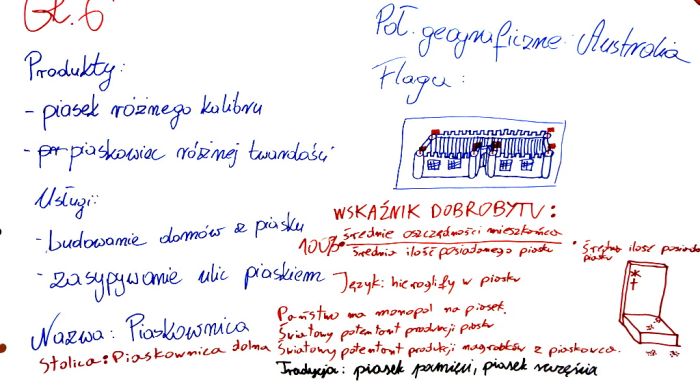 Gr. 6
Produkty:
- piasek różnego kalibru
- piaskowiec różnej twardości
Usługi:
- budowanie domów z piasku
- zasypywanie ulic piaskiem
Nazwa: Piaskownica
Stolica: Piaskownica dolna
Poł. geograficzne: Australia
Flaga:
WSKAŹNIK DOBROBYTU:
100% · średnie oszczędności mieszkańca
średnia ilość posiadanego piasku
* Średnia ilość posiada
piasku
Język: hieroglify w piasku
Państwo ma monopol na piasek.
Światowy potentant produkcji piasku
Światowy potentant produkcji nagrobków z piaskowca.
Tradycja: piasek pamięci, piasek szczęścia